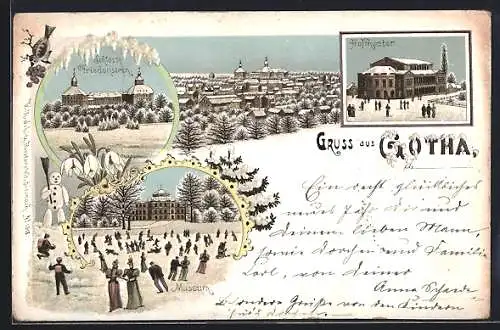 Schloss
Friedenstein.
Hoftheater
Gruss aus Gotha,
Museum.
Ein recht glückliches
neues Jahr dir und
Deinem lieben Mann,
sowie Dorchen und Familie
von Deiner
Anna
Besondere Grüße von den Kindern